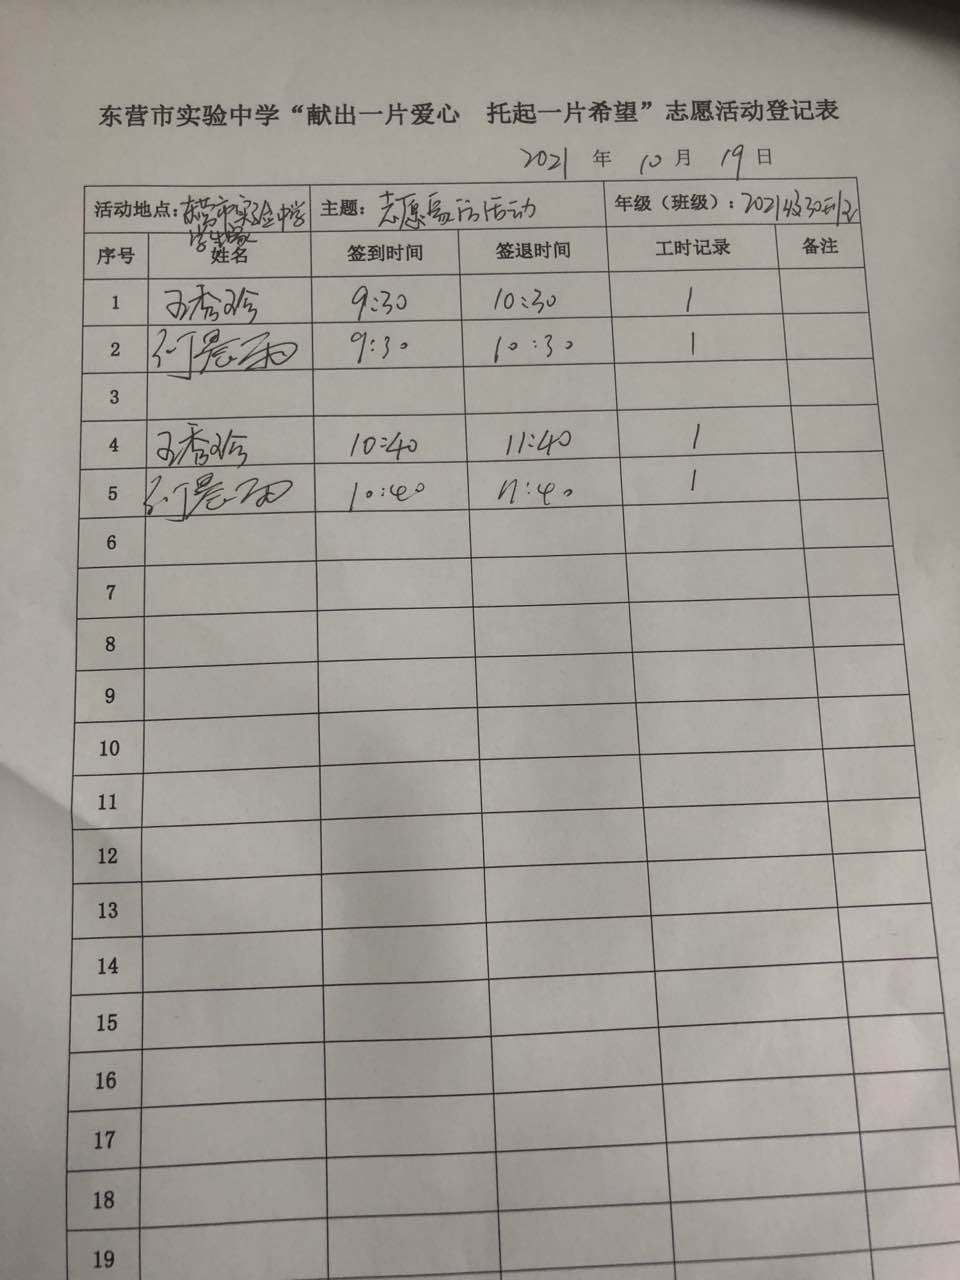 东营市实验中学“献出一片爱心 托起一片希望”志愿活动登记表
2021 年 10 月 19 日
活动地点：东营市实验中学 主题：志愿 活动 年级（班级）：2021级30
学生
序号 姓名 签到时间 签退时间 工时记录 备注
1 王秀玲 9:30 10:30 1
2 9:30 10:30 1
3
4 王秀玲 10:40 11:40 1
5 10:40 11:40 1
6
7
8
9
10
11
12
13
14
15
16
17
18
19